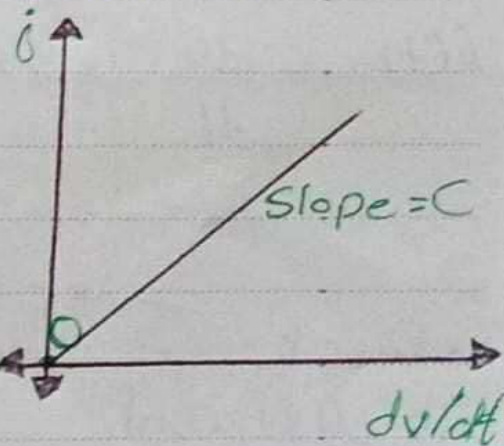 i
Slope = C
O
dv/dt